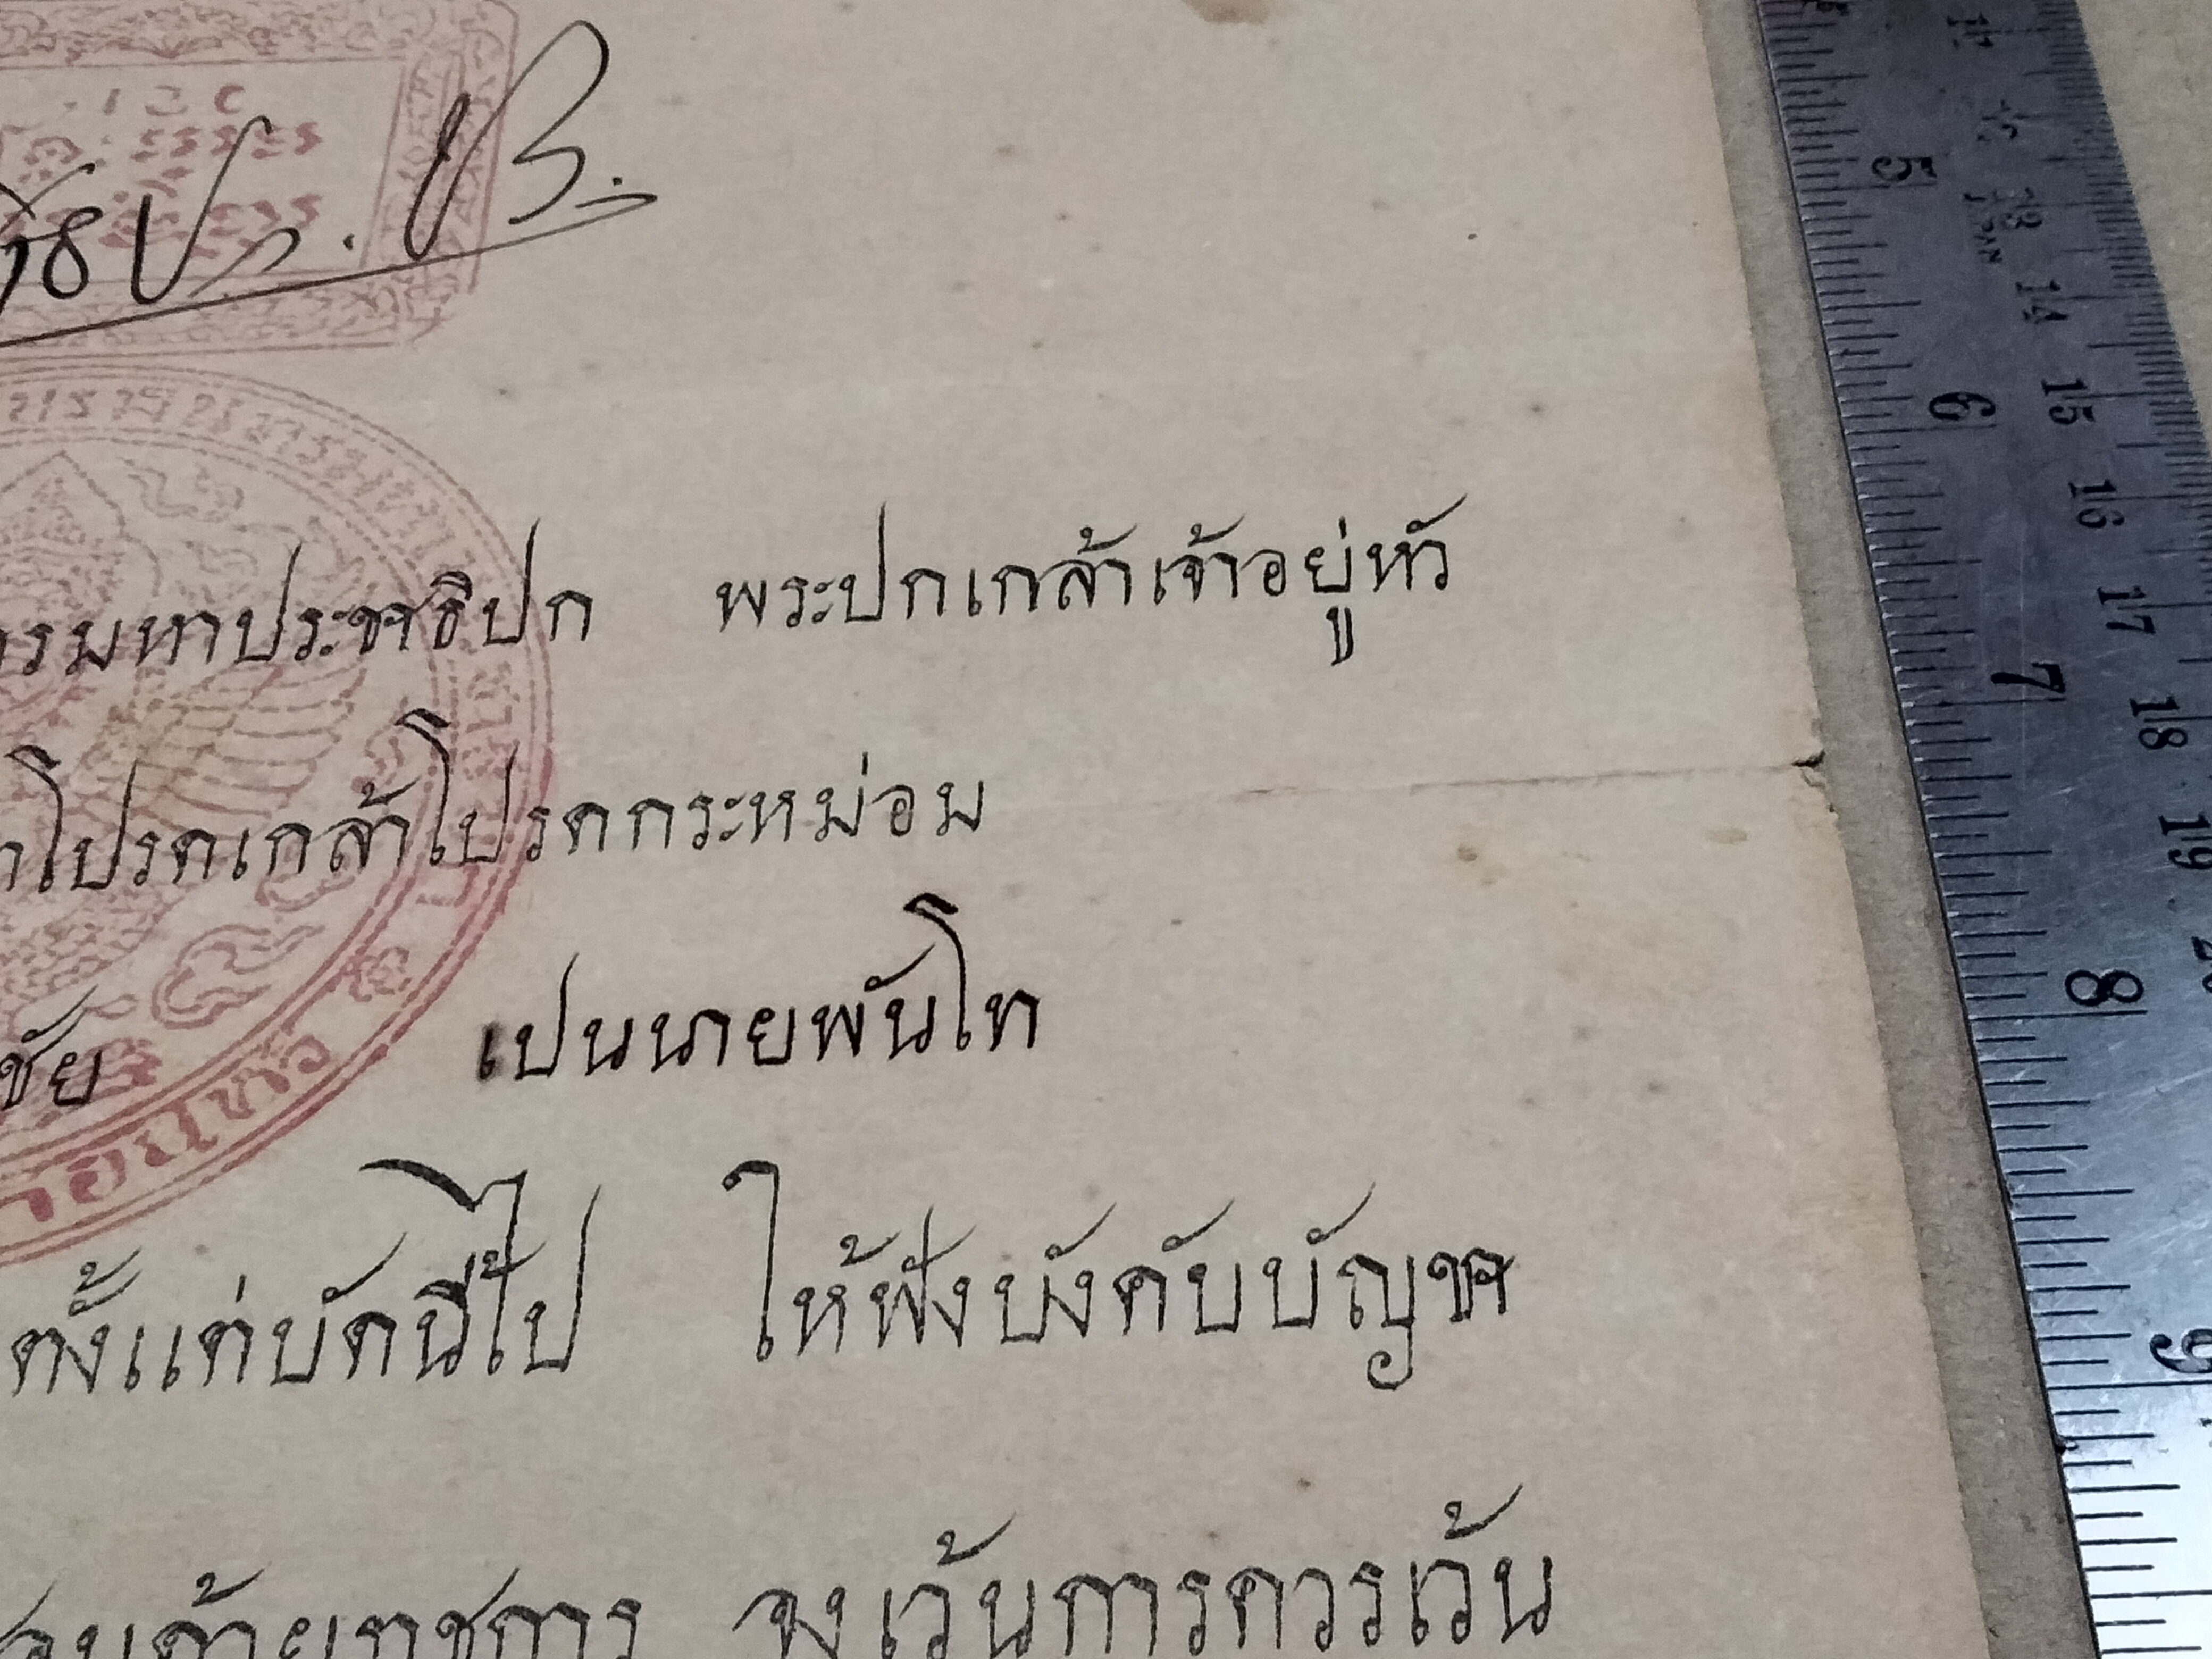 ธิปก. ปร.
รมหาประชาธิปก พระปกเกล้าเจ้าอยู่หัว
โปรดเกล้าโปรดกระหม่อม
ชัย เปนนายพันโท
ตั้งแต่บัดนี้ไป ให้ฟังบังคับบัญชา
ด้วยราชการ จงเว้นการควรเว้น
5 6 7 8 9
13 14 15 16 17 18 19
JAPAN